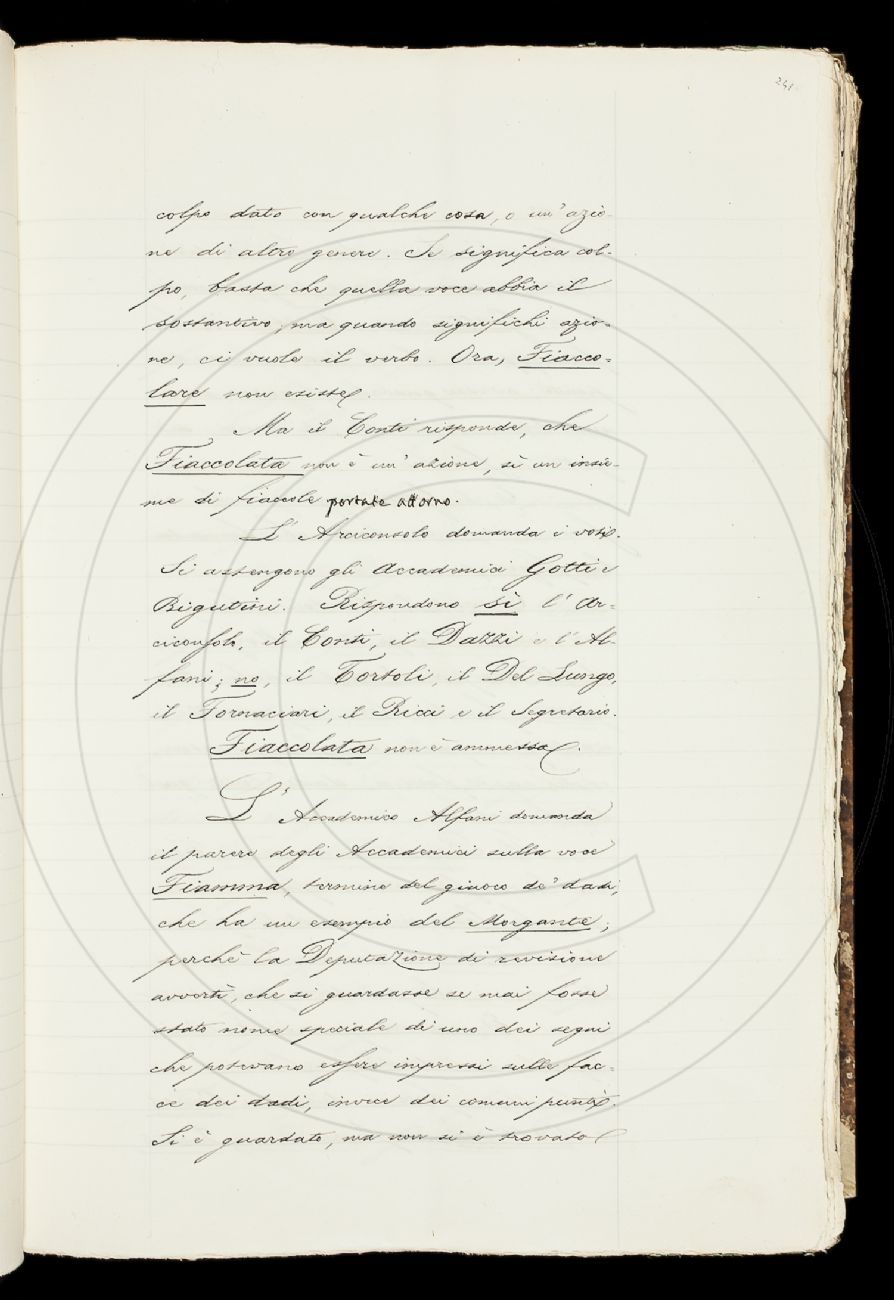 241
colpo dato con qualche cosa, o un' azio-
ne di altro genere. Se significa col-
po, basta che quella voce abbia il
sostantivo; ma quando significhi azio-
ne, ci vuole il verbo. Ora, Fiacco-
lare non esiste.
Ma il Conti risponde, che
Fiaccolata non è un' azione, sì un insie-
me di fiaccole portate attorno.
L' Arciconsolo domanda i voti.
Si astengono gli Accademici Gotti e
Rigutini. Rispondono sì l' Ar-
ciconsolo, il Conti, il Dazzi e l' Al-
fani; no, il Tortoli, il Del Lungo,
il Fornaciari, il Ricci e il Segretario.
Fiaccolata non è ammessa.
L' Accademico Alfani domanda
il parere degli Accademici sulla voce
Fiamma, termine del giuoco de' dadi,
che ha un esempio del Morgante;
perchè la Deputazione di revisione
avvertì, che si guardasse se mai fosse
stato nome speciale di uno dei segni
che potevano essere impressi sulle fac-
ce dei dadi, invece dei comuni punti.
Si è guardato, ma non si è trovato